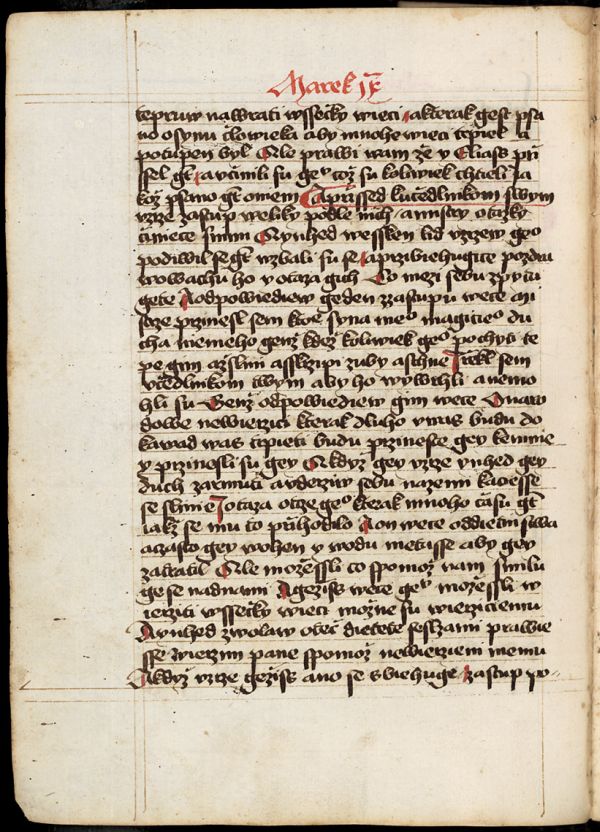 Marek ıx
tepruw nawrati wssečky wieci a kterak gest psa
no o synu člowieka aby mnohe wieci trpiel a
potupen byl Ale prawi wam že y Eliass při
ssel gt a včinili su geº tož su koliwek chtieli ja
kož psano gt o niem A přissed k učedlnikom swym
vzrze zastup weliky podle nich a mistry otazky
činiece s nimi A ynhed wessken lid vzrzew geº
podiwil se gt vzbali su se a przibiehugice pozdra
wowachu ho y otaza gich Co mezi sebu zpytu
gete A odpowiediew geden z zastupu wece mi
strze przinesl sem k toě syna meº magicieº du
cha niemeho genž kdež koliwek geº pochyti te
pe gim a z slini a sskrzipi zuby a schne I řekl sem
včedlnikom twym aby ho wywrhli a nemo
hli su Genž odpowiediew gim wece O naro
dowe newierzici kterak dluho v was budu do
kawad was trpieti budu przineste gey ke mnie
y przinesli su gey A když gey vzrze ynhed gey
duch zarmuti a vderziw sebu na zemi kaciesse
se slinie I otaza otze geº kterak mnoho časú gt
iakž se mu to přihodilo A on wece od dietinstwa
a často gey w ohen y w wodu metasse aby gey
zatratil Ale možessli co spomož nam smilu
ge se nad nami A gežiss wece geº možessli w
ierziti wssečky wieci možne su wierziciemu
A ynhed zwolaw otec dietete s eslzami prawie
sse wierzim pane spomož newierzieni memu
A když vzrze gežiss ano se sbiehuge zastup po-